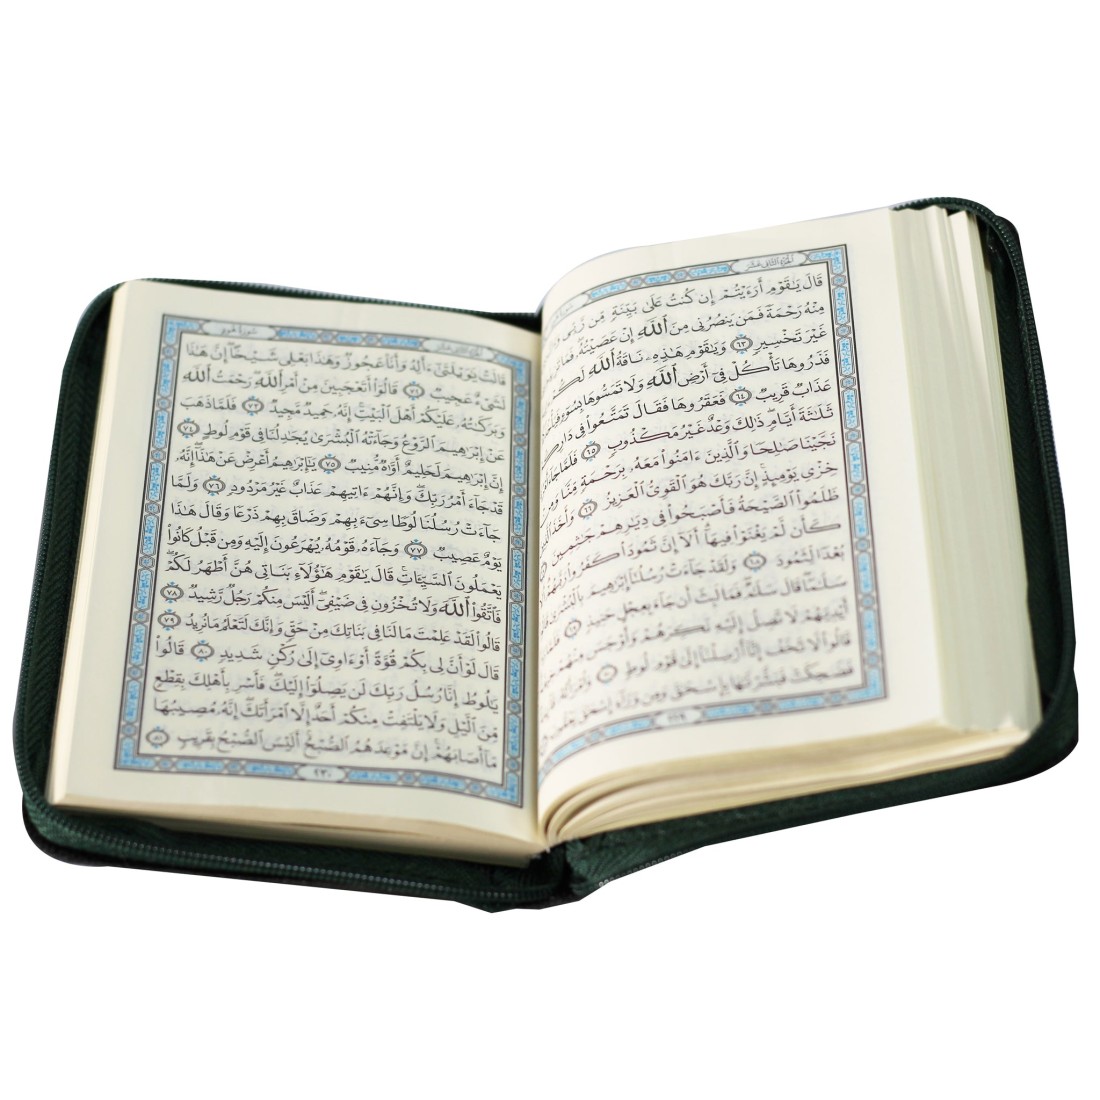 الجزء الثاني عشر
قَالَ يَٰقَوْمِ أَرَءَيْتُمْ إِن كُنتُ عَلَىٰ بَيِّنَةٍ مِّن رَّبِّى
مِنْهُ رَحْمَةً فَمَن يَنصُرُنِى مِنَ ٱللَّهِ إِنْ عَصَيْتُهُۥ فَمَا
غَيْرَ تَخْسِيرٍ ٦٣ وَيَٰقَوْمِ هَٰذِهِۦ نَاقَةُ ٱللَّهِ لَكُمْ
فَذَرُوهَا تَأْكُلْ فِىٓ أَرْضِ ٱللَّهِ وَلَا تَمَسُّوهَا بِسُوٓءٍ
عَذَابٌ قَرِيبٌ ٦٤ فَعَقَرُوهَا فَقَالَ تَمَتَّعُوا۟ فِى دَارِكُمْ
ثَلَٰثَةَ أَيَّامٍ ذَٰلِكَ وَعْدٌ غَيْرُ مَكْذُوبٍ ٦٥ فَلَمَّا جَآءَ
نَجَّيْنَا صَٰلِحًا وَٱلَّذِينَ ءَامَنُوا۟ مَعَهُۥ بِرَحْمَةٍ مِّنَّا وَمِنْ
خِزْىِ يَوْمِئِذٍ إِنَّ رَبَّكَ هُوَ ٱلْقَوِىُّ ٱلْعَزِيزُ ٦٦ وَأَخَذَ ٱلَّذِينَ
ظَلَمُوا۟ ٱلصَّيْحَةُ فَأَصْبَحُوا۟ فِى دِيَٰرِهِمْ جَٰثِمِينَ
كَأَن لَّمْ يَغْنَوْا۟ فِيهَآ أَلَآ إِنَّ ثَمُودَا۟ كَفَرُوا۟ رَبَّهُمْ
بُعْدًا لِّثَمُودَ ٦٨ وَلَقَدْ جَآءَتْ رُسُلُنَآ إِبْرَٰهِيمَ بِٱلْبُشْرَىٰ
سَلَٰمًا قَالَ سَلَٰمٌ فَمَا لَبِثَ أَن جَآءَ بِعِجْلٍ حَنِيذٍ
أَيْدِيَهُمْ لَا تَصِلُ إِلَيْهِ نَكِرَهُمْ وَأَوْجَسَ مِنْهُمْ
قَالُوا۟ لَا تَخَفْ إِنَّآ أُرْسِلْنَآ إِلَىٰ قَوْمِ لُوطٍ ٧٠ وَٱمْرَأَتُهُۥ
فَضَحِكَتْ فَبَشَّرْنَٰهَا بِإِسْحَٰقَ وَمِن وَرَآءِ إِسْحَٰقَ يَعْقُوبَ
٢٢٩
الجزء الثاني عشر سورة هود
قَالَتْ يَٰوَيْلَتَىٰٓ ءَأَلِدُ وَأَنَا۠ عَجُوزٌ وَهَٰذَا بَعْلِى شَيْخًا إِنَّ هَٰذَا
لَشَىْءٌ عَجِيبٌ ٧٢ قَالُوٓا۟ أَتَعْجَبِينَ مِنْ أَمْرِ ٱللَّهِ رَحْمَتُ ٱللَّهِ
وَبَرَكَٰتُهُۥ عَلَيْكُمْ أَهْلَ ٱلْبَيْتِ إِنَّهُۥ حَمِيدٌ مَّجِيدٌ ٧٣ فَلَمَّا ذَهَبَ
عَنْ إِبْرَٰهِيمَ ٱلرَّوْعُ وَجَآءَتْهُ ٱلْبُشْرَىٰ يُجَٰدِلُنَا فِى قَوْمِ لُوطٍ ٧٤
إِنَّ إِبْرَٰهِيمَ لَحَلِيمٌ أَوَّٰهٌ مُّنِيبٌ ٧٥ يَٰٓإِبْرَٰهِيمُ أَعْرِضْ عَنْ هَٰذَآ إِنَّهُۥ
قَدْ جَآءَ أَمْرُ رَبِّكَ وَإِنَّهُمْ ءَاتِيهِمْ عَذَابٌ غَيْرُ مَرْدُودٍ ٧٦ وَلَمَّا
جَآءَتْ رُسُلُنَا لُوطًا سِىٓءَ بِهِمْ وَضَاقَ بِهِمْ ذَرْعًا وَقَالَ هَٰذَا
يَوْمٌ عَصِيبٌ ٧٧ وَجَآءَهُۥ قَوْمُهُۥ يُهْرَعُونَ إِلَيْهِ وَمِن قَبْلُ كَانُوا۟
يَعْمَلُونَ ٱلسَّيِّـَٔاتِ قَالَ يَٰقَوْمِ هَٰٓؤُلَآءِ بَنَاتِى هُنَّ أَطْهَرُ لَكُمْ
فَٱتَّقُوا۟ ٱللَّهَ وَلَا تُخْزُونِ فِى ضَيْفِىٓ أَلَيْسَ مِنكُمْ رَجُلٌ رَّشِيدٌ ٧٨
قَالُوا۟ لَقَدْ عَلِمْتَ مَا لَنَا فِى بَنَاتِكَ مِنْ حَقٍّ وَإِنَّكَ لَتَعْلَمُ مَا نُرِيدُ ٧٩
قَالَ لَوْ أَنَّ لِى بِكُمْ قُوَّةً أَوْ ءَاوِىٓ إِلَىٰ رُكْنٍ شَدِيدٍ ٨٠ قَالُوا۟
يَٰلُوطُ إِنَّا رُسُلُ رَبِّكَ لَن يَصِلُوٓا۟ إِلَيْكَ فَأَسْرِ بِأَهْلِكَ بِقِطْعٍ
مِّنَ ٱلَّيْلِ وَلَا يَلْتَفِتْ مِنكُمْ أَحَدٌ إِلَّا ٱمْرَأَتَكَ إِنَّهُۥ مُصِيبُهَا
مَآ أَصَابَهُمْ إِنَّ مَوْعِدَهُمُ ٱلصُّبْحُ أَلَيْسَ ٱلصُّبْحُ بِقَرِيبٍ ٨١
٢٣٠